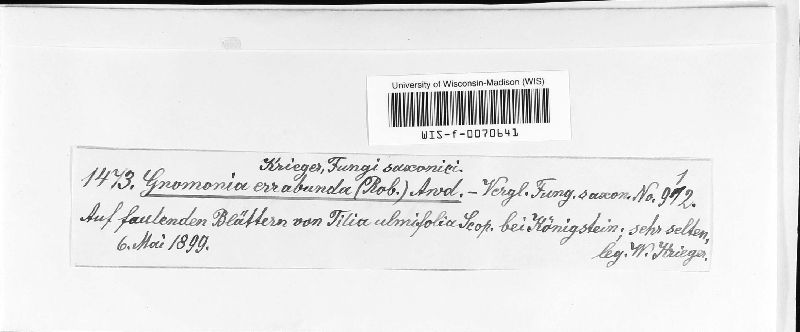 University of Wisconsin-Madison (WIS)
WIS-f-0070641
Krieger, Fungi saxonici.
1473. Gnomonia errabunda (Rob.) Awd. – Vergl. Fung. saxon. No. 912.
Auf faulenden Blättern von Tilia ulmifolia Scop. bei Königstein; sehr selten,
6. Mai 1899.
leg. W. Krieger.